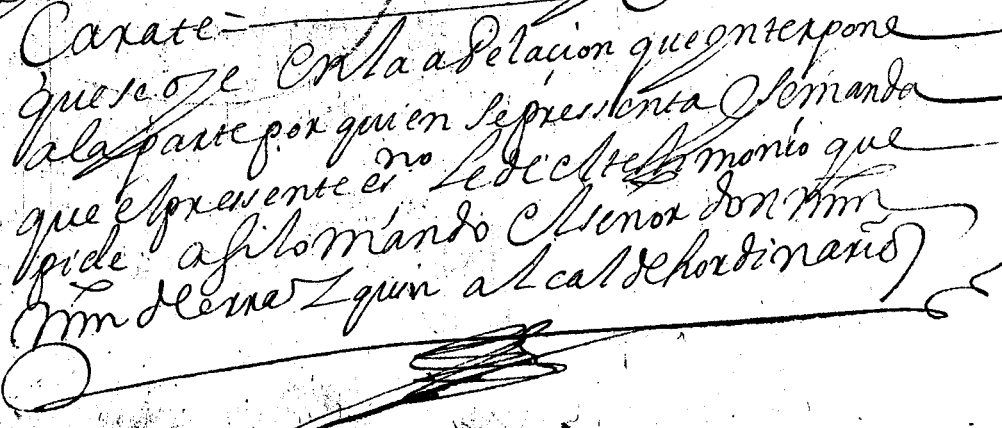 Carate =
que se oye en la apelacion que ynterpone
a la parte por quien se pressenta y se manda
que el pressente es no le de el testimonio que
pide asi lo mando el señor don mĩn
mĩn de erraz quin alcalde hordinario